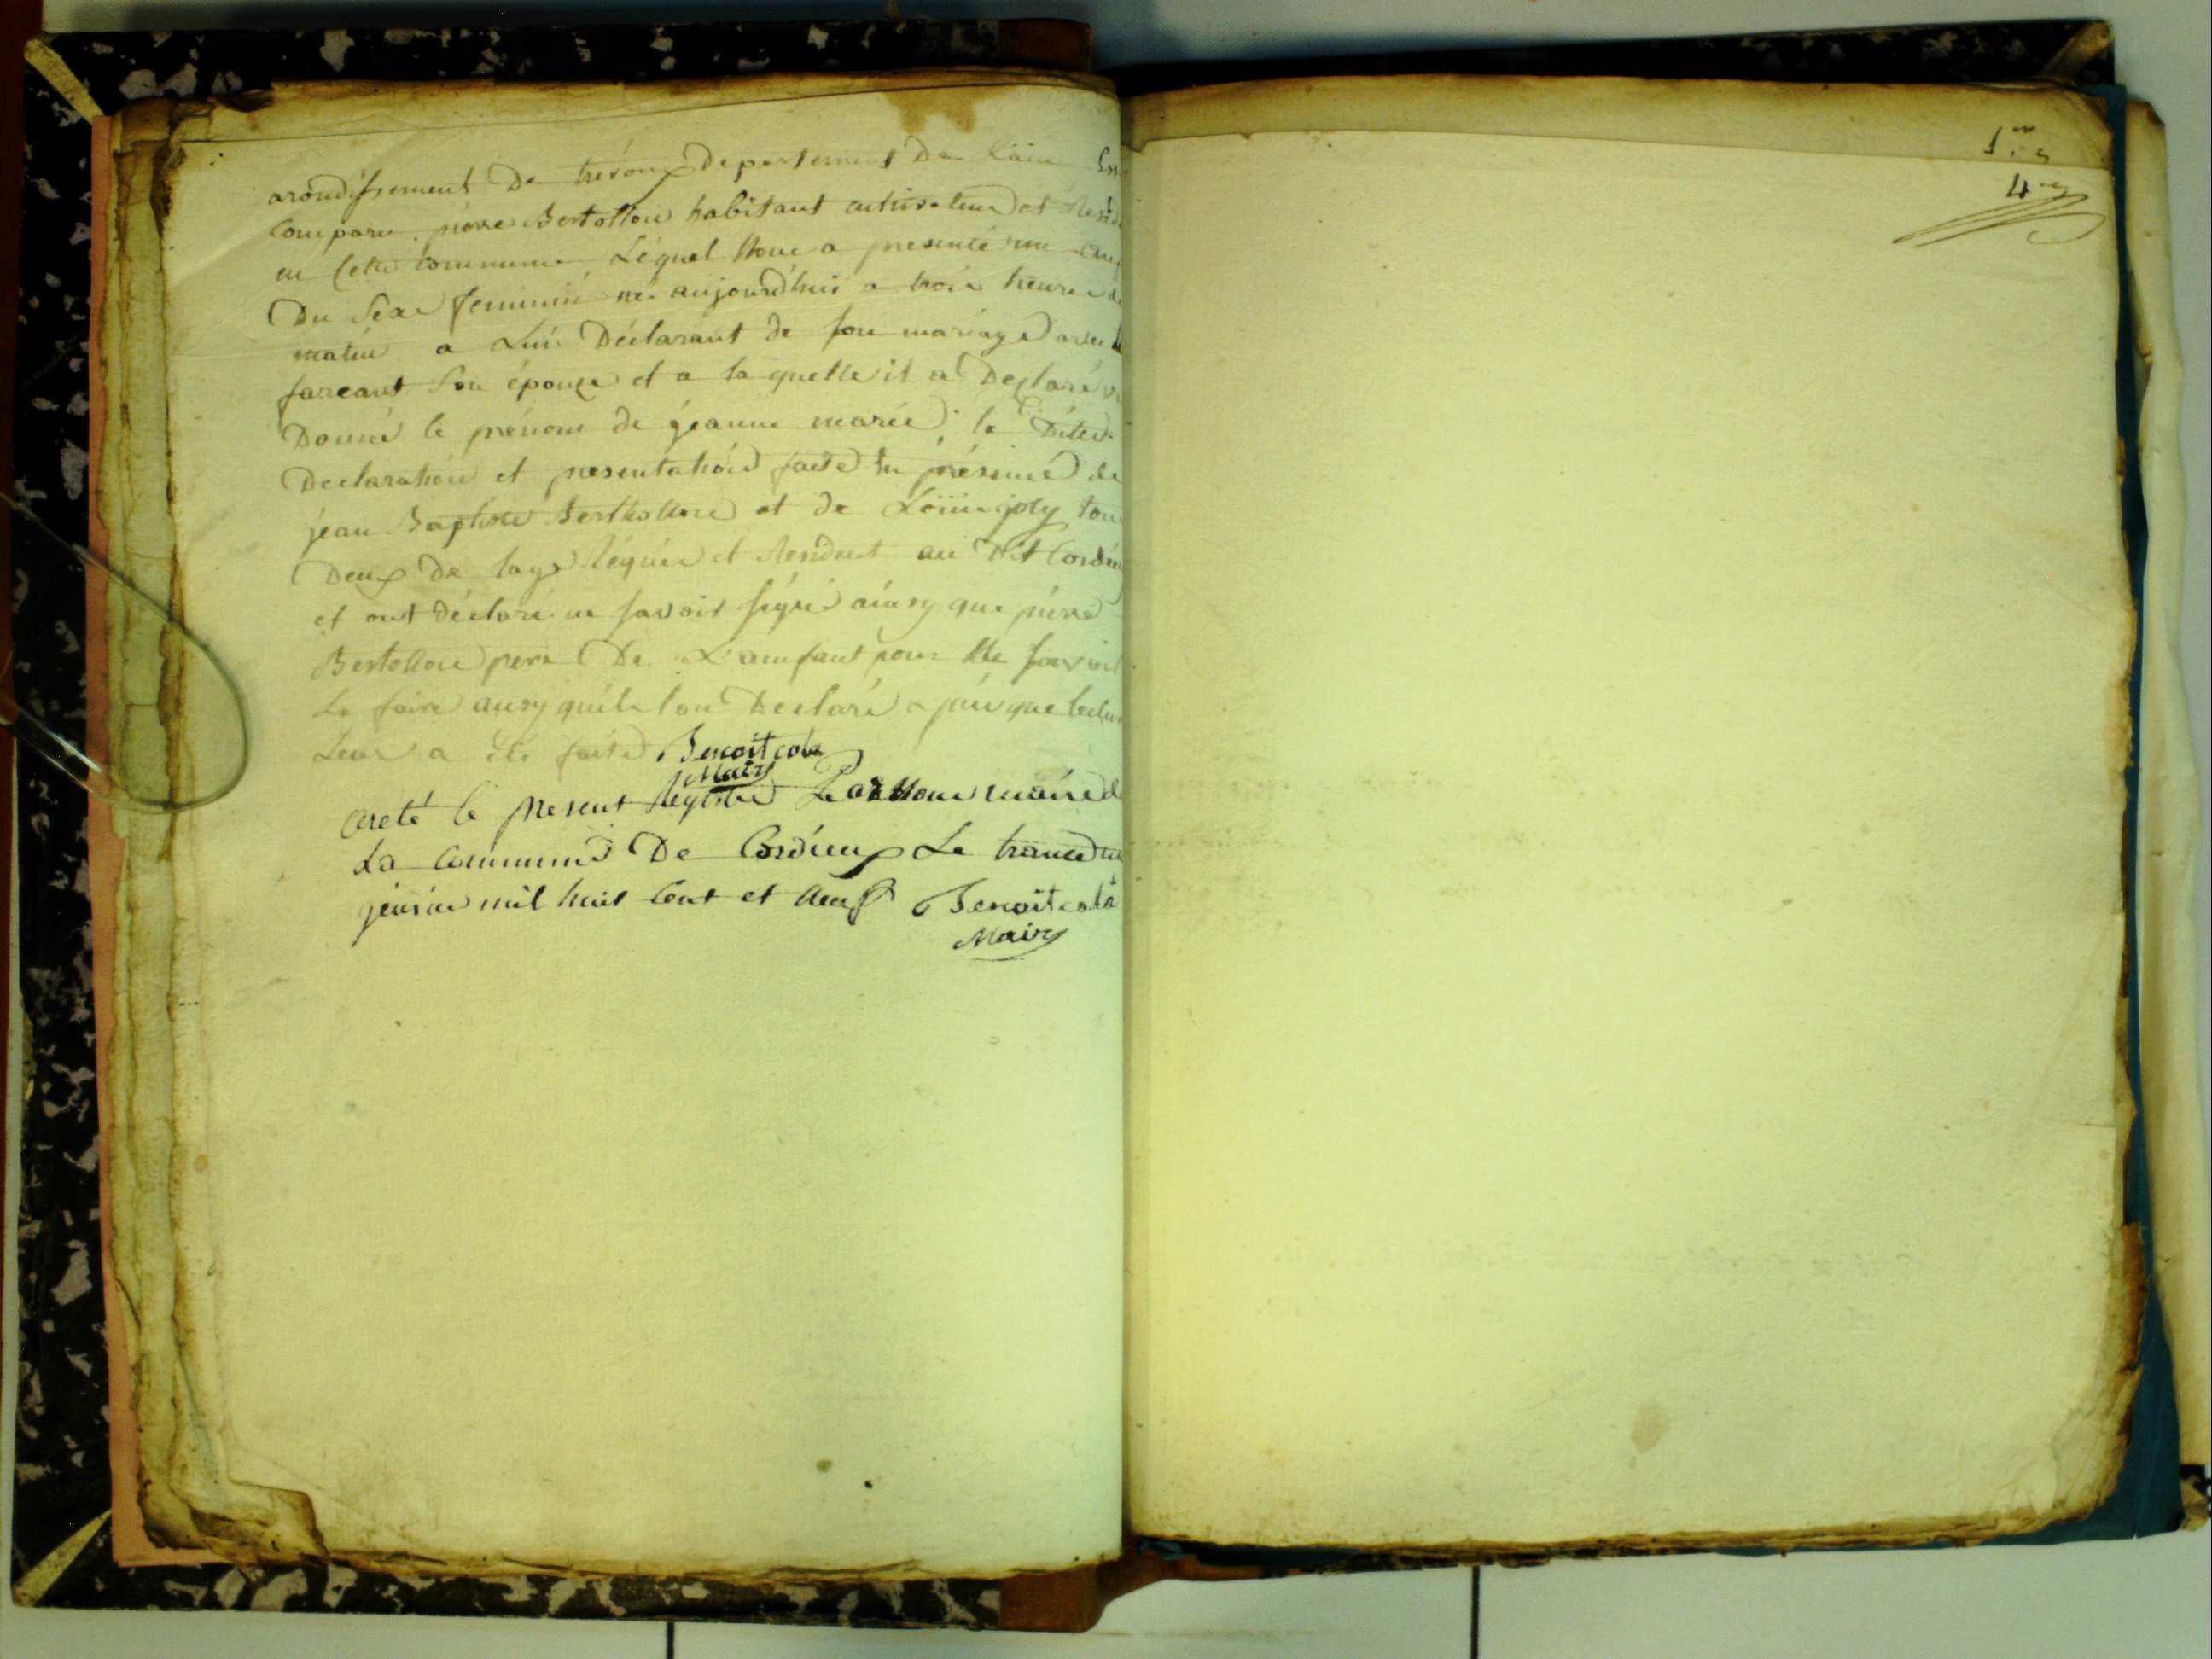 arondissement De trévoux Departement De L'ain Est
Comparu pierre Bertollon habitant cultivateur et Resid
en Cette commune Léquel Nous a presenté une enf
Du Sexe feminin née aujourdhui a trois heures du
matin a Lui Déclarant de son mariage avec
farcant Son épouze et a la quelle il a Declaré v
Donné le prénom de jeanne marie la Dite
Declaration et presentation faite En présence de
jean Baptiste Bertholon et de Louis joly tou
Deux De lage Réquis et Resident au Dit Cordieu
et ont déclaré ne savoir signé ainsy que pierre
Bertollon pere De L'amfant pour Ne savoir
Le faire ausy qu'ils l'on Declaré apuis que lectu
Leur a été faite Benoit cola
Maire
Areté le present Registre Par Nous maire de
La Commune De Cordieux Le trante un
jenvier mil huit Cent et Neuf Benoit cola
Maire
1er
4me